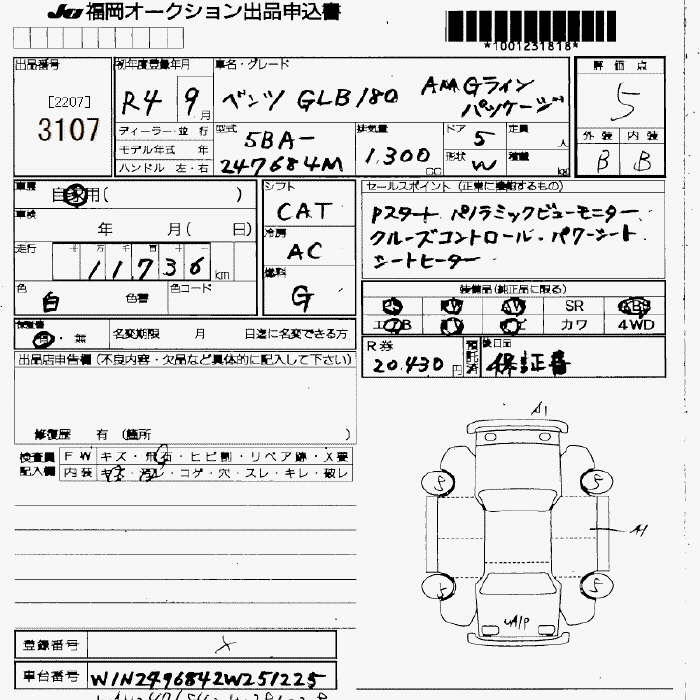 JU 福岡オークション出品申込書
*1001231818*
出品番号
[2207]
3107
初年度登録年月
R4 9月
車名・グレード
ベンツ GLB180 AMGライン
パッケージ
評価点
5
外装 内装
B B
ディーラー・並行
モデル年式 年
ハンドル 左・右
型式
5BA-
247684M
排気量
1,300 cc
ドア 5
形状 W
定員 人
積載 kg
車歴
自家用( )
車検
年 月( 日)
走行
十万千百十
11736 km
色
白 色替
色コード
シフト
CAT
冷房
AC
燃料
G
セールスポイント (正常に機能するもの)
Pスタート パノラミックビューモニター
クルーズコントロール・パワーシート
シートヒーター
装備品(純正品に限る)
PS PW AW SR ABS
エアB TV ナビ カワ 4WD
有・無 名変期限 月 日迄に名変できる方
R券
20,430円
預託済
後日品
保証書
出品店申告欄 (不良内容・欠品など具体的に記入して下さい)
修復歴 有 (箇所 )
検査員記入欄
FW キズ・飛石・ヒビ割・リペア跡・X要
内装 キズ・汚レ・コゲ・穴・スレ・キレ・破レ
A1
5 5
A1
5 5
UA/P
登録番号 ×
車台番号 W1N2476842W251225